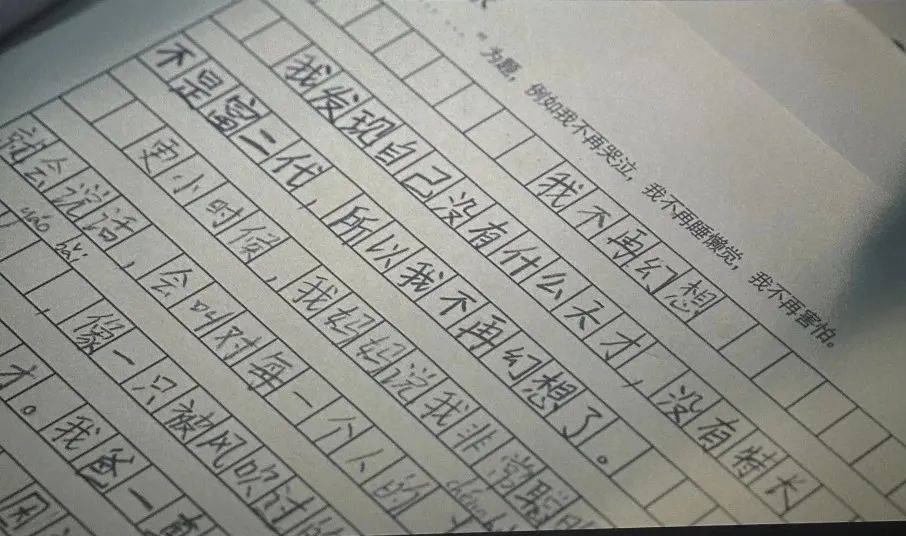 ……"为题,例如我不再哭泣,我不再睡懒觉,我不再害怕。
我不再幻想
我发现自己没有什么天才,没有特长
不是富二代,所以我不再幻想了。
更小时候,我妈妈说我非常聪
就会说话,会叫对每一个人的
,像一只被风吹过的
才。我爸一直
困